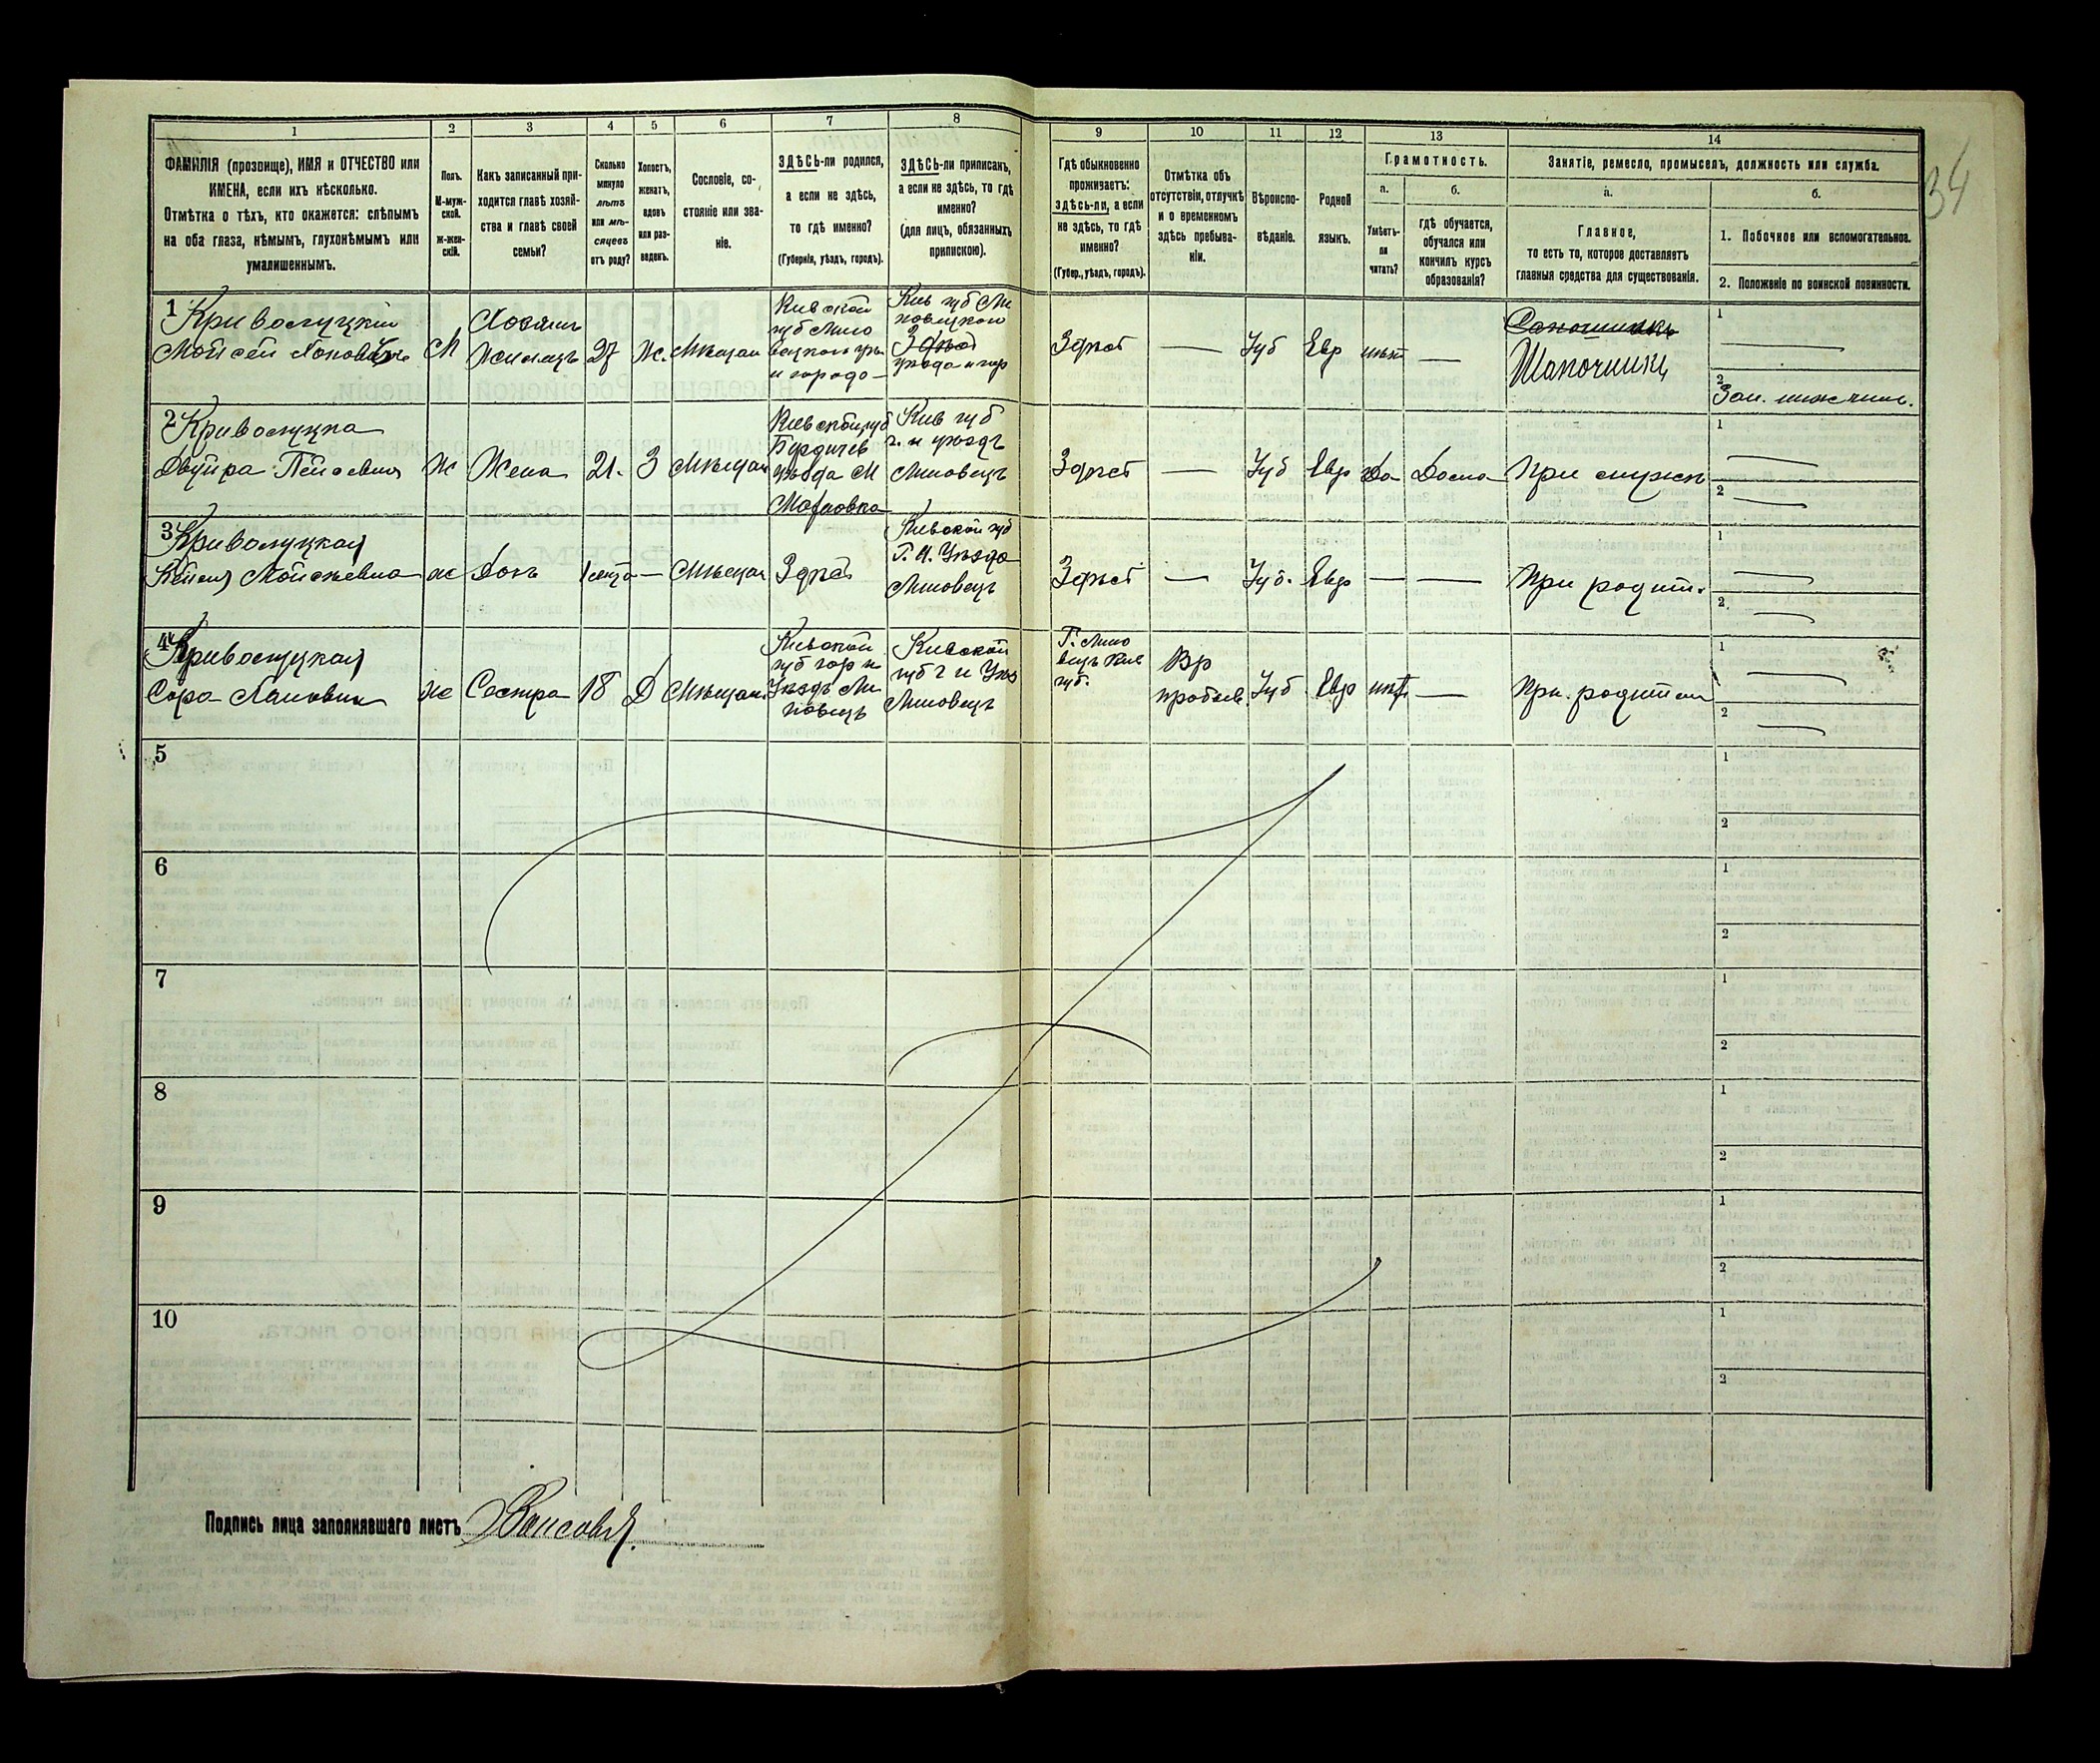 1 2 3 4 5 6 7 8 9 10 11 12 13 14
ФАМИЛІЯ (прозвище), ИМЯ и ОТЧЕСТВО или
ИМЕНА, если ихъ нѣсколько.
Отмѣтка о тѣхъ, кто окажется: слѣпымъ
на оба глаза, нѣмымъ, глухонѣмымъ или
умалишеннымъ.
Полъ.
М-муж-
ской.
ж-жен-
скій.
Какъ записанный при-
ходится главѣ хозяй-
ства и главѣ своей
семьи?
Сколько
минуло
лѣтъ
или мѣ-
сяцевъ
отъ роду?
Холостъ,
женатъ,
вдовъ
или раз-
веденъ.
Сословіе, со-
стояніе или зва-
ніе.
ЗДѢСЬ-ли родился,
а если не здѣсь,
то гдѣ именно?
(Губернія, уѣздъ, городъ).
ЗДѢСЬ-ли приписанъ,
а если не здѣсь, то гдѣ
именно?
(для лицъ, обязанныхъ
припискою).
Гдѣ обыкновенно
проживаетъ:
здѣсь-ли, а если
не здѣсь, то гдѣ
именно?
(Губер., уѣздъ, городъ).
Отмѣтка объ
отсутствіи, отлучкѣ
и о временномъ
здѣсь пребыва-
ніи.
Вѣроиспо-
вѣданіе.
Родной
языкъ.
Грамотность.
а.
Умѣетъ-
ли
читать?
б.
гдѣ обучается,
обучался или
кончилъ курсъ
образованія?
Занятіе, ремесло, промыселъ, должность или служба.
а.
Главное,
то есть то, которое доставляетъ
главныя средства для существованія.
б.
1. Побочное или вспомогательное.
2. Положеніе по воинской повинности.
34
1 Криволуцкій
Мойсей
М
Хозяинъ
Жилецъ
27
Ж.
Мѣщан
Киевской
губ Липо
вецкого
и города
Кив губ Ли
повецкого
Здѣсь
уѣзда и гор
Здѣсь
—
Іуд
Евр
нѣт
—
Шапочникъ
1
—
2
2 Криволуцка
Двейра
Ж
Жена
21.
З
Мѣщан
Киевской губ
Бердичев
уѣзда М
Махновка
Кив губ
г. и уѣздъ
Липовецъ
Здѣсь
—
Іуд
Евр
Да
Дома
При мужѣ
1
—
2
—
3 Криволуцкая
Мойсѣевна
ж
Дочь
—
Мѣщан
Здѣсь
Киевской губ
Г. И. Уѣзда
Липовецъ
Здѣсь
—
Іуд.
Евр
—
—
При родит.
1
—
2
—
4 Криволуцкая
Сора
ж
Сестра
18
Д
Мѣщан
Киевской
губ гор и
Уѣздъ Ли
повецъ
Киевской
губ г и Уѣз
Липовецъ
Г. Липо
вецъ Кив
губ.
Вр
пребыв
Іуд
Евр
нѣт.
—
При. родител
1
—
2
—
5
1
2
6
1
2
7
1
2
8
1
2
9
1
2
10
1
2
Подпись лица заполнявшаго листъ